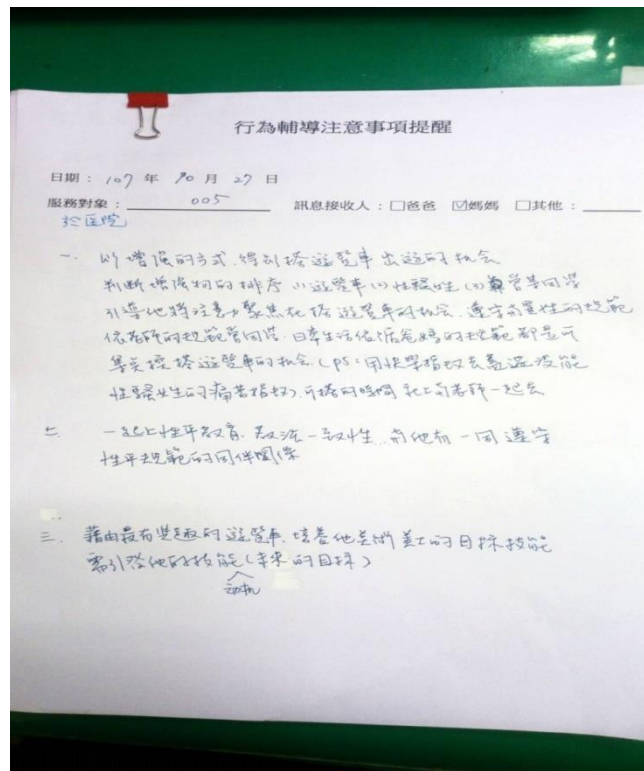 行為輔導注意事項提醒
日期：107 年 10 月 27 日
服務對象：005 訊息接收人：□爸爸 ☑媽媽 □其他：
於医院
一. 以增強的方式，得到搭遊覽車出遊的机会
判斷增強物的排序 (1)遊覽車 (2)性騷女生 (3)管學同學
引導他將注意力聚焦在搭遊覽車的机会，遵守的規範
依老師的規範管同學，日常生活依據爸媽的規範都是可
搭遊覽車的机会 (PS：用快樂指奴去蓋過沒能
性騷女生的痛苦指奴)，可搭的時間 和老師一起去
二. 一起上性平教育，教法一致性，有他有一同遵守
性平規範的同伴關係
三. 藉由最有興趣的遊覽車，培養他美術的目標技能
需引發他的技能(未來的目標)
动机